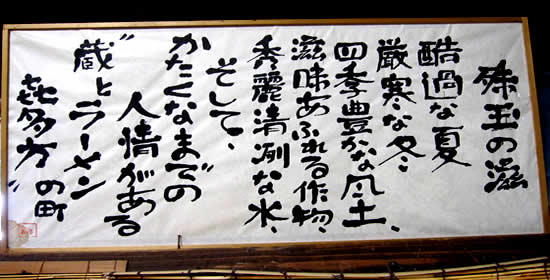 珠玉の滋
酷過な夏
厳寒な冬
四季豊かな風土、
滋味あふれる作物、
秀麗清冽な水、
そして、
かたくなまでの
人情がある
“蔵とラーメン
の町
喜多方”